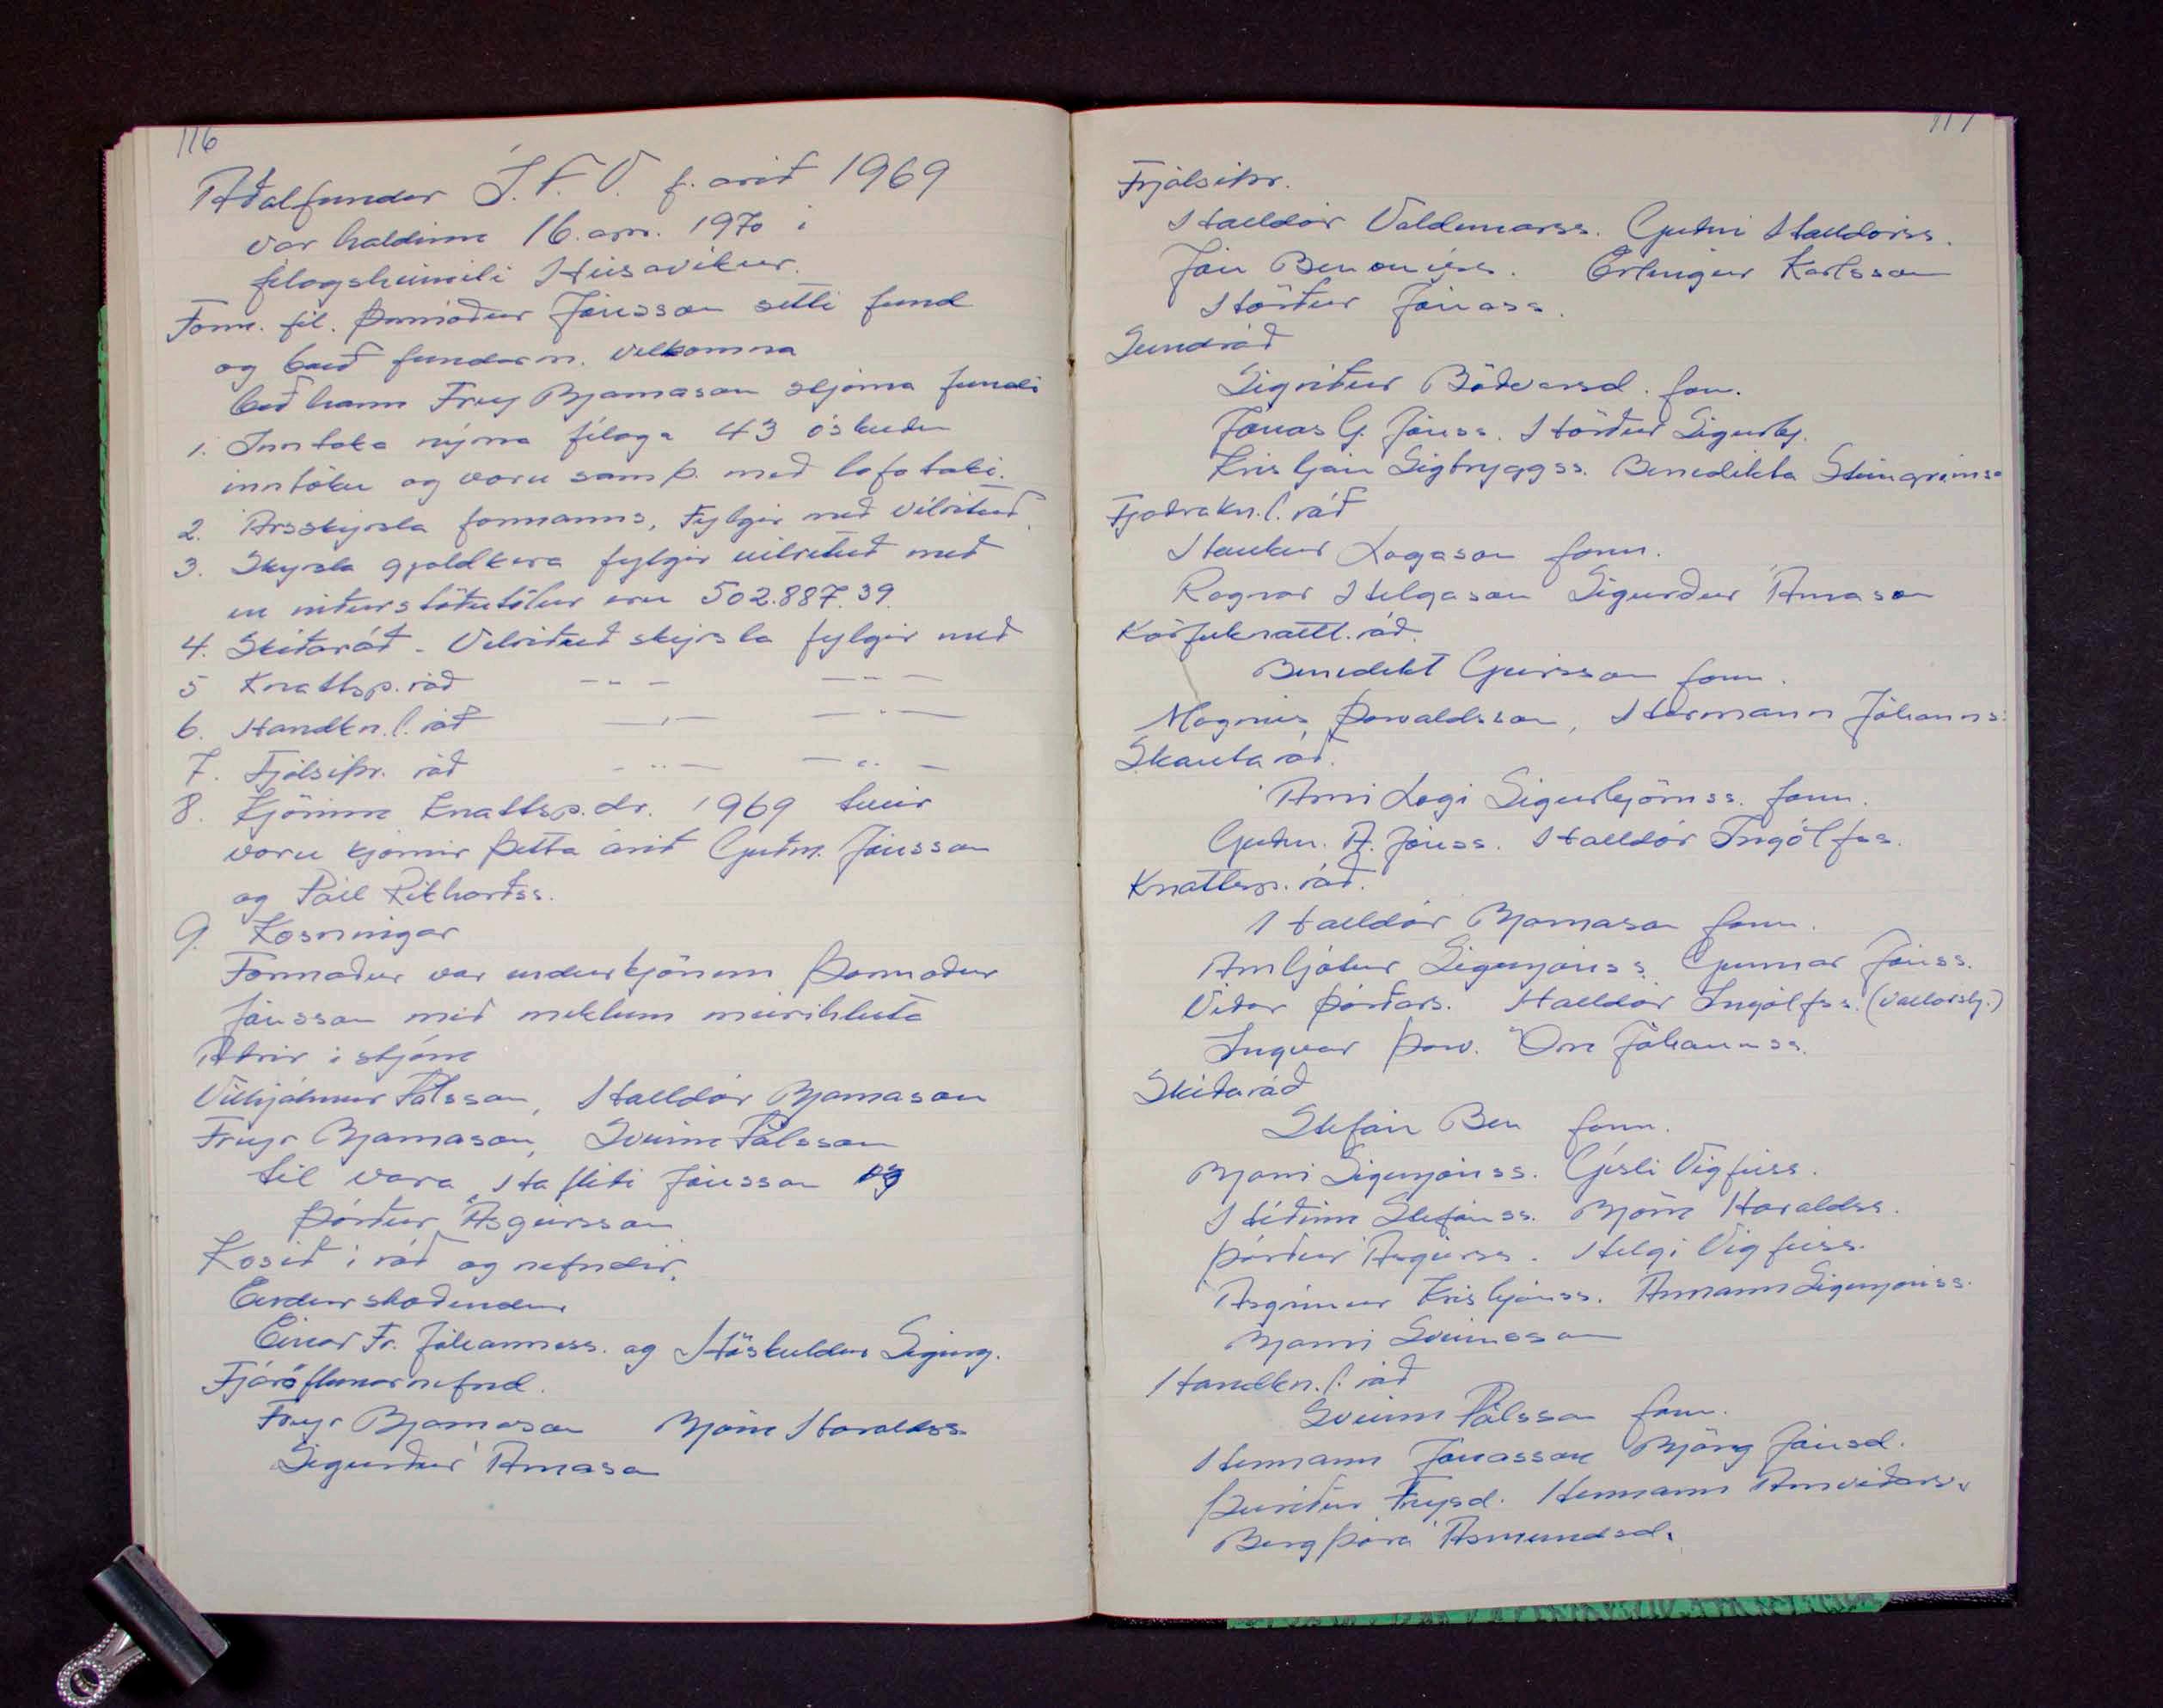 116
Aðalfundur Í.F.V. f. árið 1969
var haldinn 16. apr. 1970 i
félagsheimili Húsavíkur.
Form. fél. Þormóður Jónsson setti fund
og bauð fundarm. velkomna
bað hann Frey Bjarnason stjórna fundi
1. Inntaka nýrra félaga 43 óskuðu
inntöku og voru samþ. með lófataki.
2. Ársskýrsla formanns, Fylgir með vélrituð.
3. Skýrsla gjaldkera fylgir vélrituð með
en niðurstöðutölur eru 502.887.39.
4. Skíðaráð - Vélrituð skýrsla fylgir með
5 Knattsp. ráð -"- -"-
6. Handkn.l. ráð -"- -"-
7. Frjálsíþr. ráð -"- -"-
8. Kjörinn Knattsp.dr. 1969 tveir
voru kjörnir þetta árið Guðm. Jónsson
og Páll Ríkharðss.
9. Kosningar
Formaður var endurkjörinn Þormóður
Jónsson með miklum meirihluta
Aðrir i stjórn
Vilhjálmur Pálsson, Halldór Bjarnason
Freyr Bjarnason, Sveinn Pálsson
til vara Hafliði Jónsson og
Þórður Ásgeirsson
Kosið i ráð og nefndir.
Endurskoðendur
Einar Fr. Jóhanness. og Höskuldur Sigurg.
Fjáröflunarnefnd.
Freyr Bjarnason Björn Haraldss.
Sigurður Árnason
117
Frjálsíþr.
Halldór Valdimarss. Guðni Halldórss.
Jón Benónýss. Erlingur Karlsson
Hörður Jónass.
Sundráð
Sigríður Böðvarsd. for.
Jónas G. Jónss. Hörður Sigurbj.
Kristján Sigtryggss. Benedikta Steingríms
Fjaðrakn.l. ráð
Haukur Logason form.
Ragnar Helgason Sigurður Árnason
Körfuknattl. ráð.
Benedikt Geirsson form.
Magnús Þorvaldsson, Hermann Jóhanns.
Skautaráð.
Árni Logi Sigurbjörnss. form.
Guðm. A. Jónss. Halldór Ingólfss.
Knattsp. ráð.
Halldór Bjarnason form.
Arnljótur Sigurjónss. Gunnar Jónss.
Viðar Þórðars. Halldór Ingólfss. (vallarstj.)
Ingvar Þorv. Örn Jóhannss.
Skíðaráð
Stefán Ben form.
Bjarni Sigurjónss. Gísli Vigfúss.
Héðinn Stefánss. Björn Haraldss.
Þórður Ásgeirss. Helgi Vigfúss.
Ásgrímur Kristjánss. Ármann Sigurjónss.
Bjarni Sveinsson
Handkn.l. ráð
Sveinn Pálsson form.
Hermann Jónasson Björg Jónsd.
Þuríður Freysd. Hermann Arnviðars.
Bergþóra Ásmundsd.